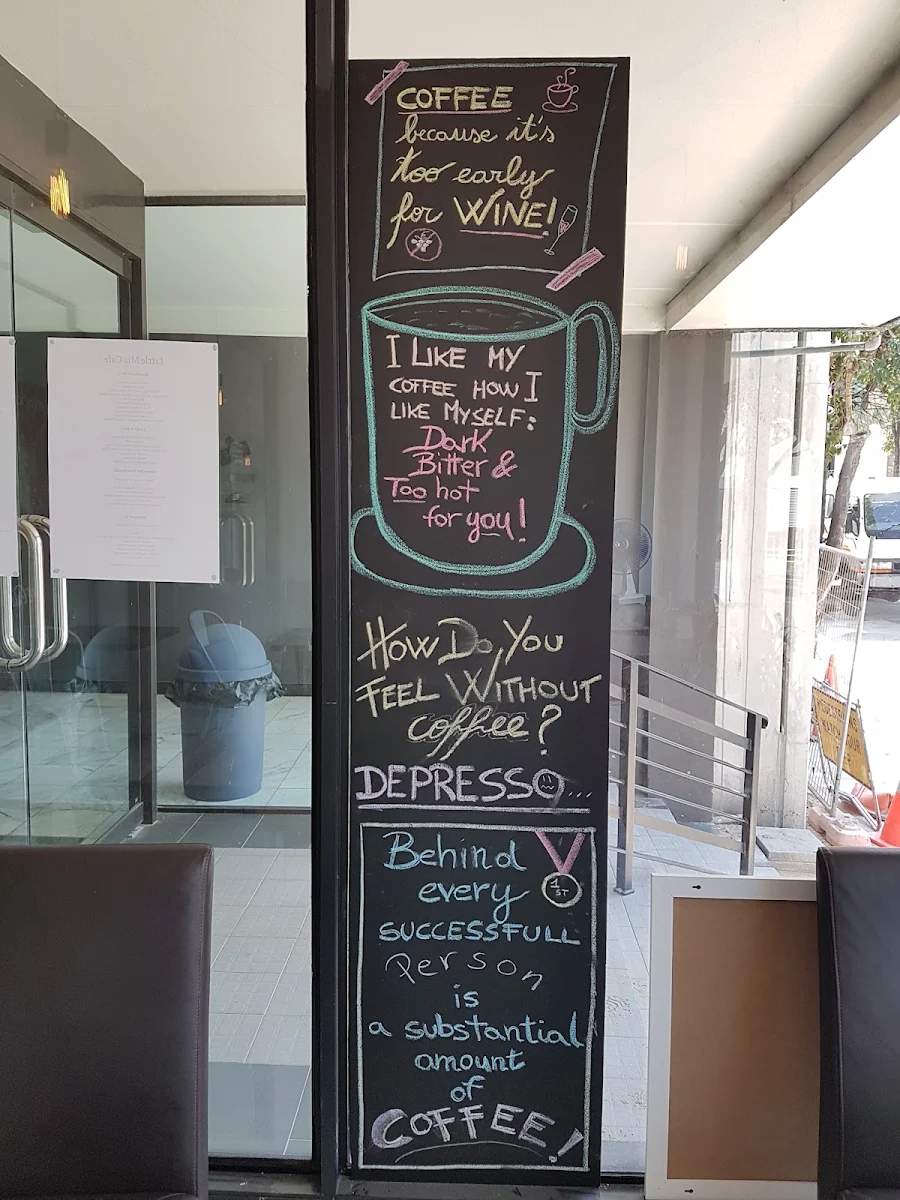 COFFEE
because it's
too early
for WINE!
I LIKE MY
COFFEE HOW I
LIKE MYSELF:
Dark
Bitter &
Too hot
for you!
HOW DO YOU
FEEL WITHOUT
coffee?
DEPRESSO...
Behind
every
1ST
SUCCESSFULL
Person
is
a substantial
amount
of
COFFEE!